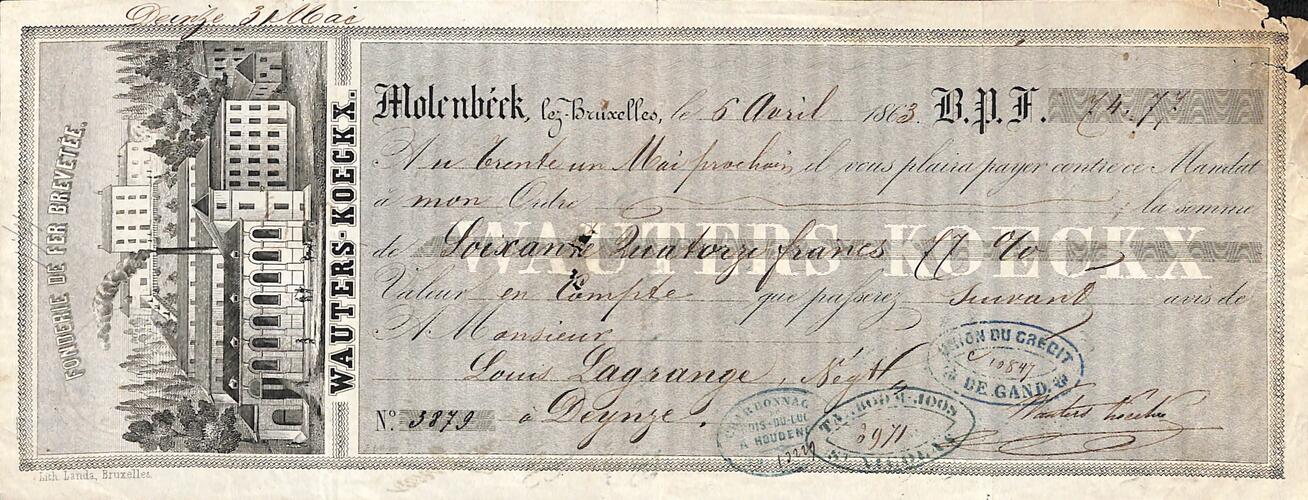 Deinze 31 Mai
FONDERIE DE FER BREVETÉE.
WAUTERS-KOECKX.
Molenbéek, lez-Bruxelles, le 6 Avril 1863. B.P.F. 74.77
Au trente un Mai prochain il vous plaira payer contre ce Mandat
à mon Ordre la somme
de Soixante Quatorze francs 77 %
WAUTERS-KOECKX
Valeur en Compte que passerez suivant avis de
A Monsieur
Louis Lagrange, Négt
No. 3879 à Deynze.
UNION DU CRÉDIT
10847
DE GAND
CHARBONNAG
BOIS-DU-LUC
A HOUDENG
JOOS
3971
Wauters Koeckx
Lith. Landa, Bruxelles.